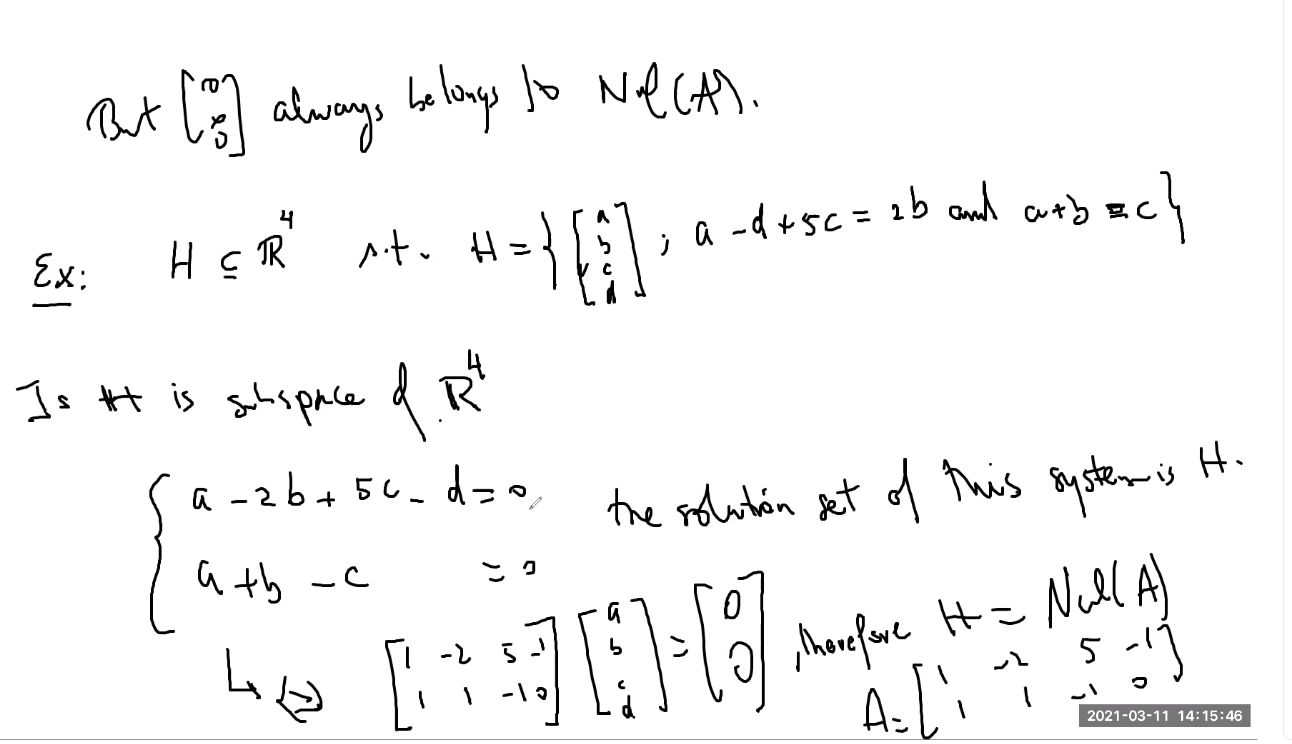 But [0 : 0] always belongs to Nul(A).
Ex: H ⊆ ℝ⁴ s.t. H = { [a b c d] ; a - d + 5c = 2b and a + b = c }
Is H is subspace of ℝ⁴
{ a - 2b + 5c - d = 0, the solution set of this system is H.
a + b - c = 0
↳ ⇔ [1 -2 5 -1; 1 1 -1 0] [a b c d] = [0 0], therefore H = Nul(A)
A = [1 -2 5 -1; 1 1 -1 0]
2021-03-11 14:15:46